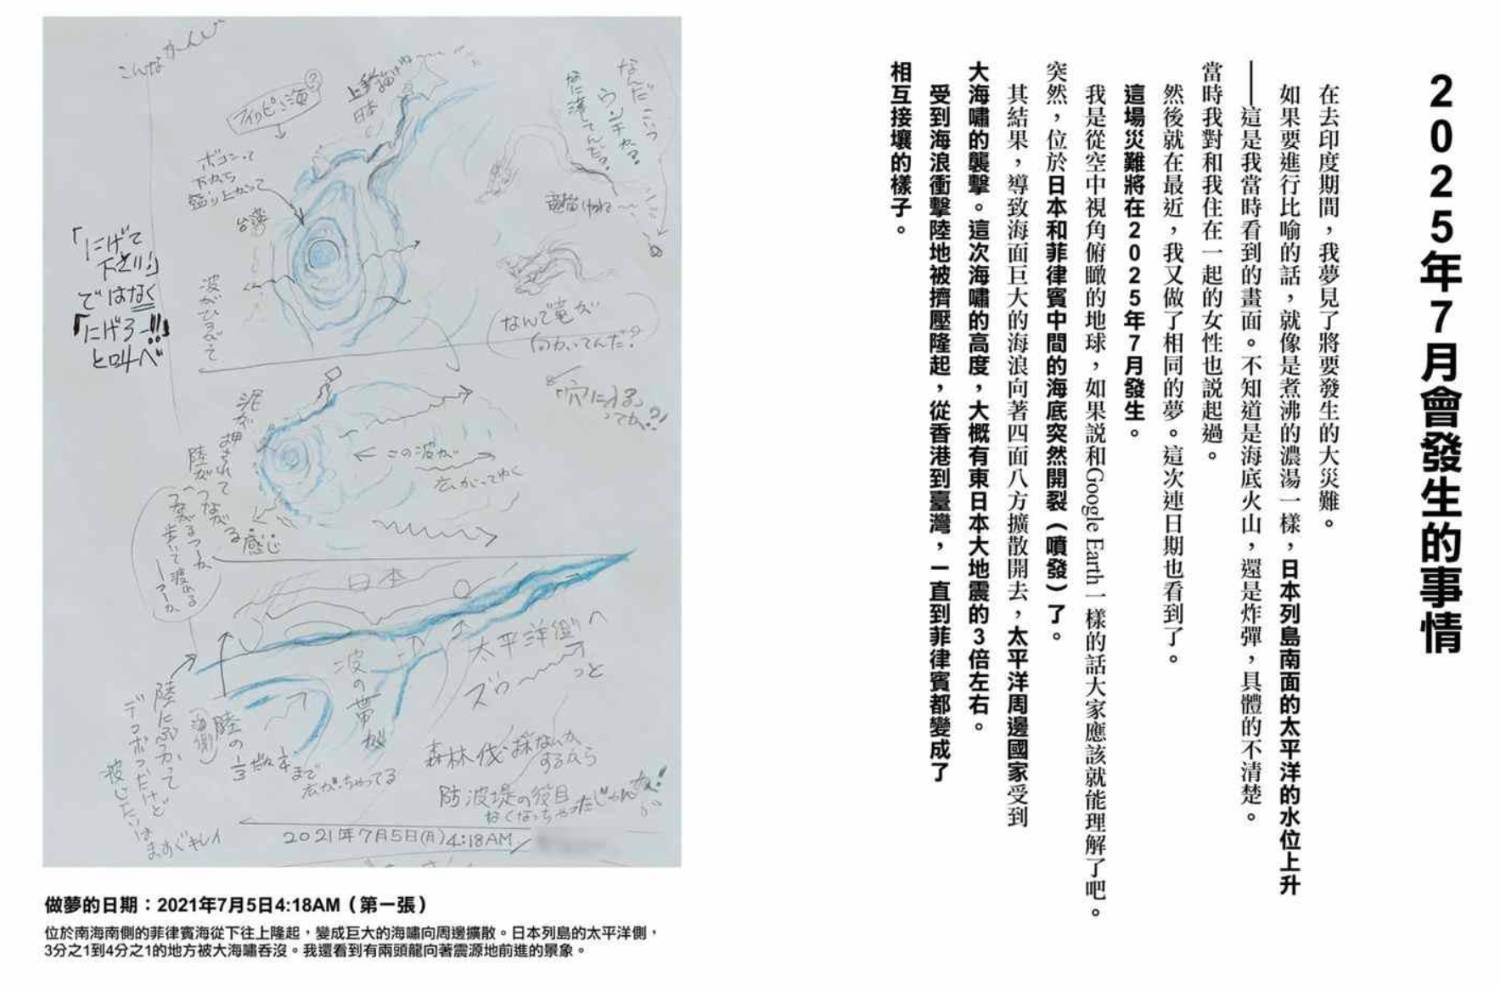 2025年7月會發生的事情
在去印度期間，我夢見了將要發生的大災難。
如果要進行比喻的話，就像是煮沸的濃湯一樣，日本列島南面的太平洋的水位上升
——這是我當時看到的畫面。不知道是海底火山，還是炸彈，具體的不清楚。
當時我對和我住在一起的女性也説起過。
然後就在最近，我又做了相同的夢。這次連日期也看到了。
這場災難將在2025年7月發生。
我是從空中視角俯瞰的地球，如果説和Google Earth一樣的話大家應該就能理解了吧。
突然，位於日本和菲律賓中間的海底突然開裂（噴發）了。
其結果，導致海面巨大的海浪向著四面八方擴散開去，太平洋周邊國家受到
大海嘯的襲擊。這次海嘯的高度，大概有東日本大地震的3倍左右。
受到海浪衝擊陸地被擠壓隆起，從香港到臺灣，一直到菲律賓都變成了
相互接壤的樣子。
こんなかんじ
フィリピン海
ボコンって
下から
盛り上がって
台湾
「にげて
下さい!」
ではなく
「にげろー!!」
と叫べ
波がひろがって
なんだこいつ
ウンチか?
なんで竜が
向かってんだ?
この波が
広がってゆく
陸がつながる
感じ
日本
太平洋側へ
ズゥ〜っと
波の帯が
陸にぶつかって
デコボコだけど
(海側)
陸の
1/3だか1/4まで
広がっちゃってる
森林伐採なんか
するから
防波堤の役目
なくなっちゃったじゃんか!
2021年7月5日(月)4:18AM
做夢的日期：2021年7月5日4:18AM（第一張）
位於南海南側的菲律賓海從下往上隆起，變成巨大的海嘯向周邊擴散。日本列島的太平洋側，
3分之1到4分之1的地方被大海嘯吞沒。我還看到有兩頭龍向著震源地前進的景象。